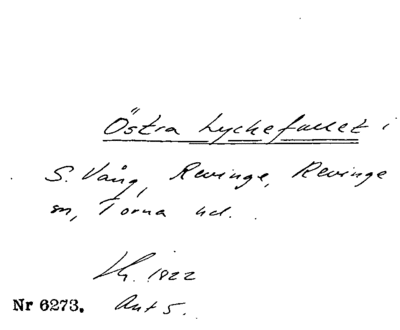 Östra Lyckefallet i
S. Vång, Revinge, Revinge
sn, Torna hd.
Lh. 1822
Nr 6273. Akt 5.